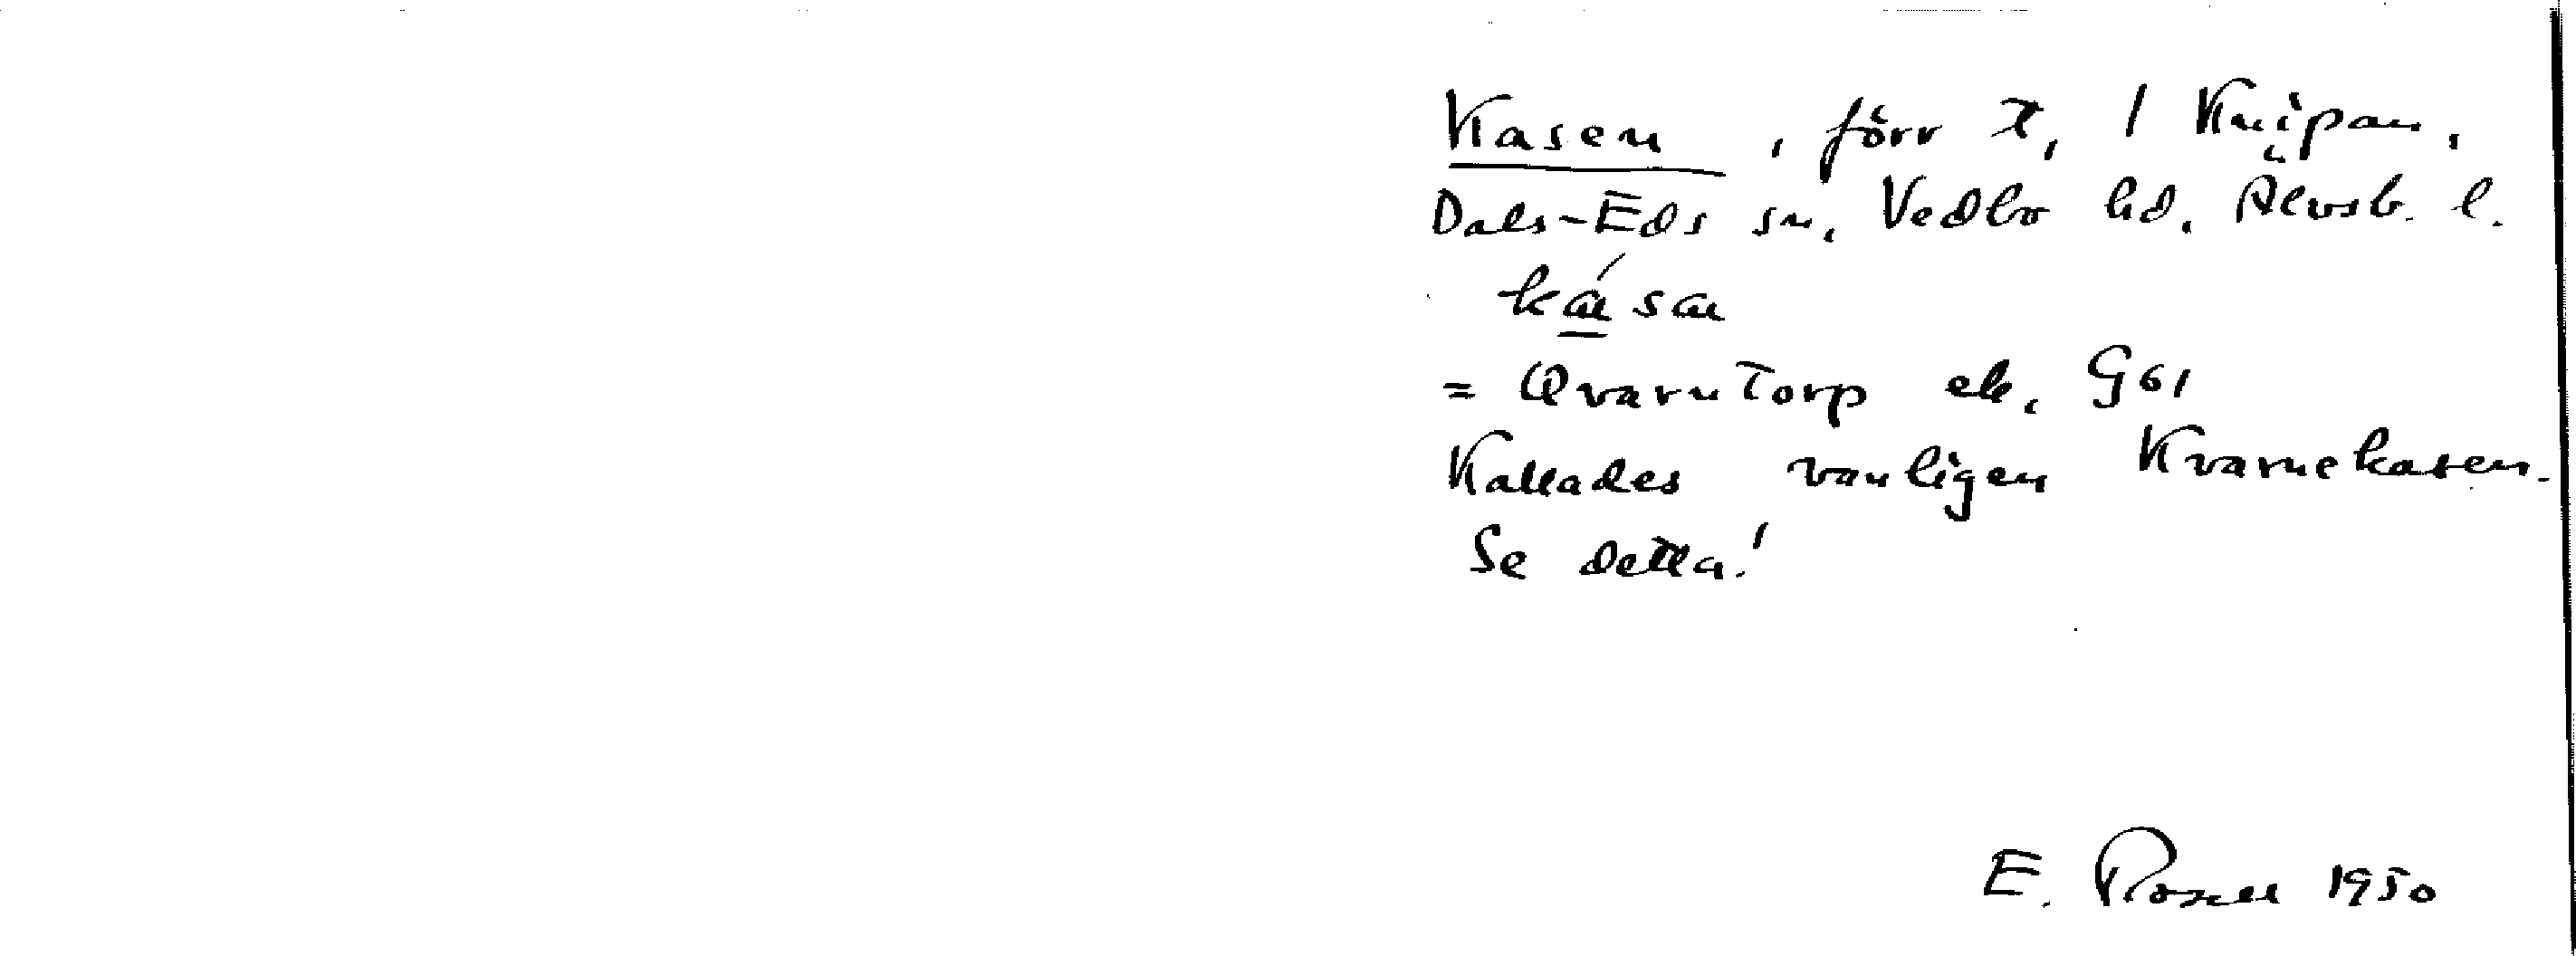 Kasen, förr t, / Knipan,
Dals-Eds sn, Vedbo hd. Älvsb. l.
kású
= Qvarntorp ek. G61
Kallades vanligen Kvarnekasen.
Se detta!
E. Rosell 1950